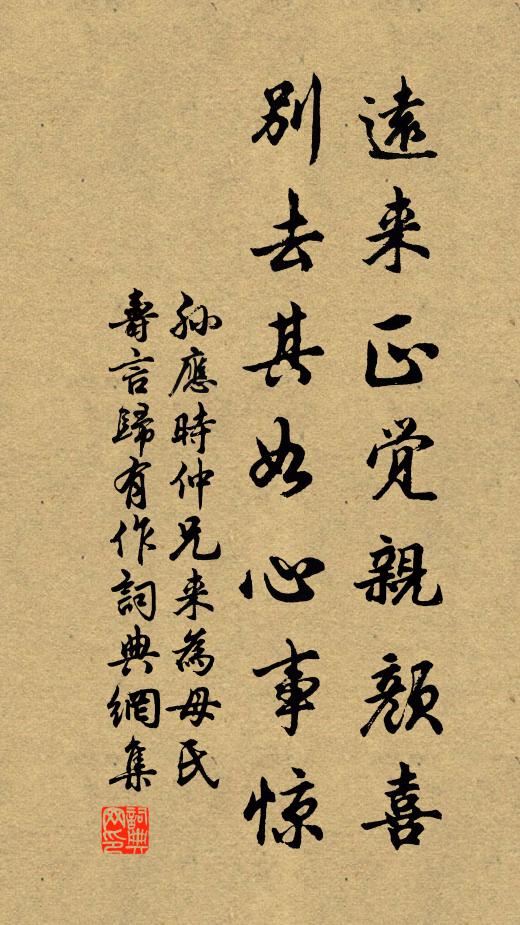 遠来正觉親颜喜
别去其如心事惊
孙應時仲兄来為母氏
壽言歸有作詞典網集
詞典
网印